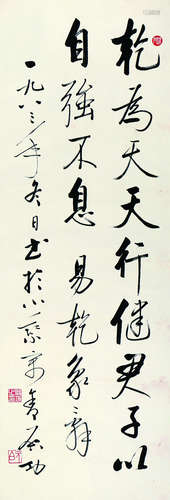 乾為天天行健君子以
自強不息 易乾象辭
一九八三年冬日书於小乘寓舍启功